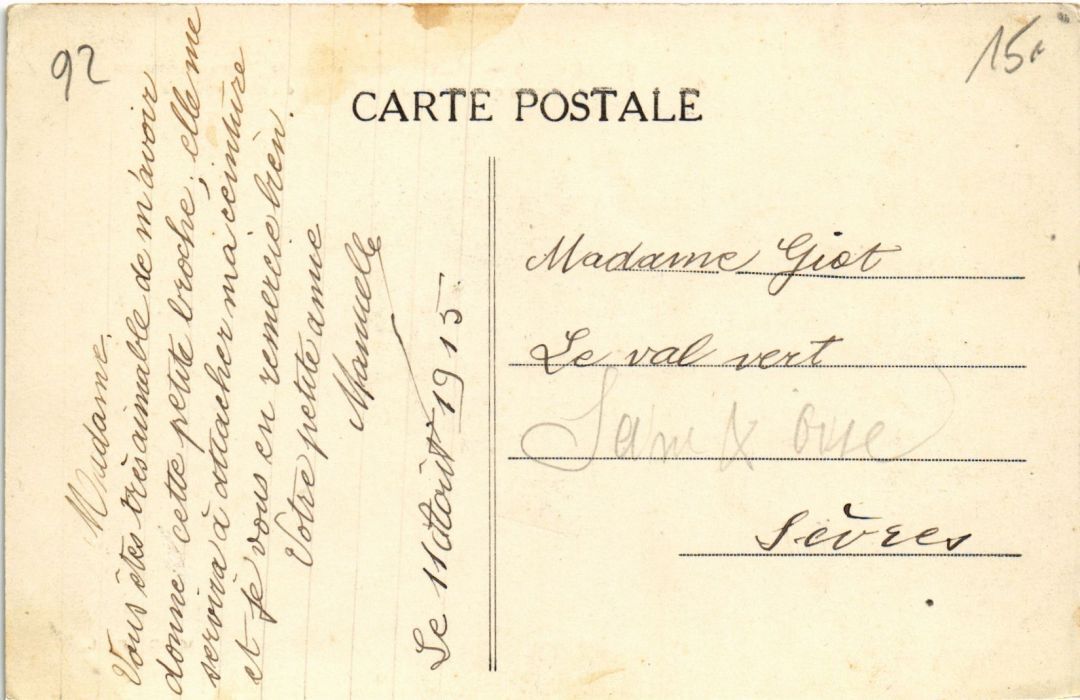 92
15
CARTE POSTALE
Madame.
Vous êtes très aimable de m'avoir
donné cette petite broche, elle me
servira à attacher ma ceinture
et je vous en remercie bien.
Votre petite amie
Manuelle
Le 11 Août 1915
Madame Giot
Le val vert
Seine & Oise
Sèvres